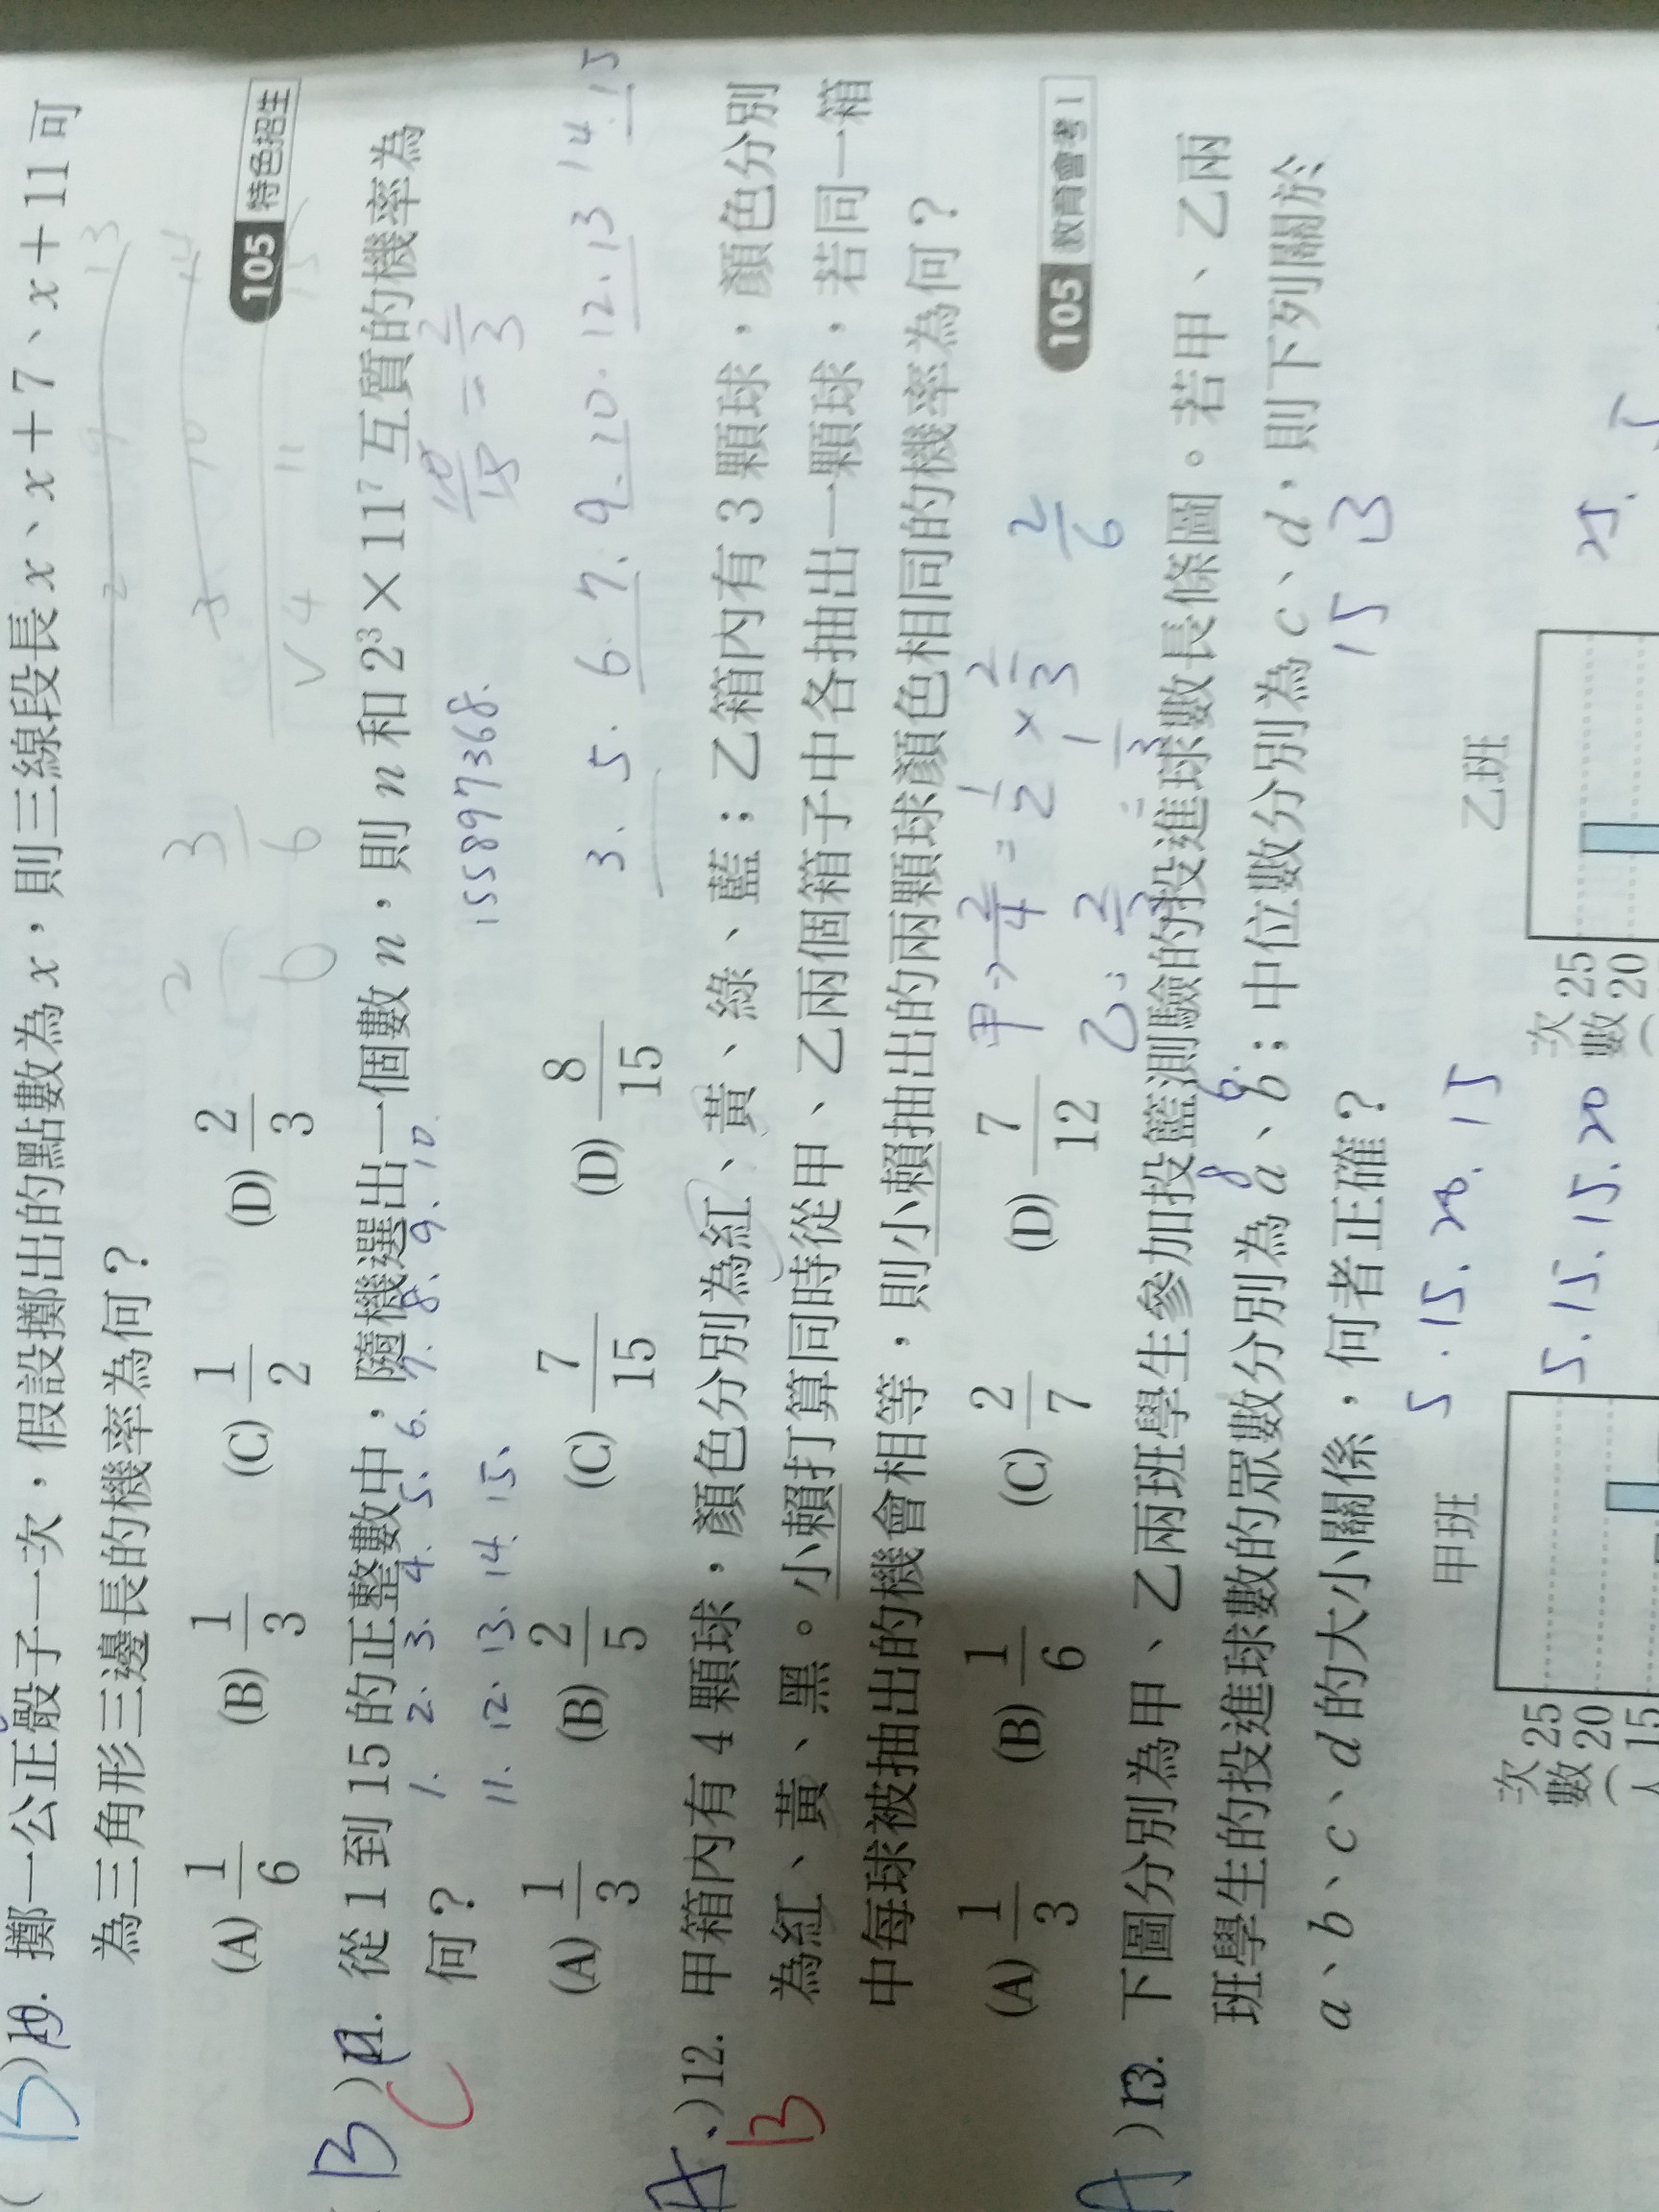 (B)10. 擲一公正骰子一次，假設擲出的點數為x，則三線段長x、x＋7、x＋11可
為三角形三邊長的機率為何？
105 特色招生
(A) 1/6 (B) 1/3 (C) 1/2 (D) 2/3
B )11. 從1到15的正整數中，隨機選出一個數n，則n和2³×11⁷互質的機率為
何？
C
1. 2. 3. 4. 5. 6. 7. 8. 9. 10.
11. 12. 13. 14. 15、
155897368.
10/15 = 2/3
(A) 1/3 (B) 2/5 (C) 7/15 (D) 8/15
3. 5. 6. 7. 9. 10. 12. 13 14. 15
A )12. 甲箱內有4顆球，顏色分別為紅、黃、綠、藍；乙箱內有3顆球，顏色分別
B
為紅、黃、黑。小賴打算同時從甲、乙兩個箱子中各抽出一顆球，若同一箱
中每球被抽出的機會相等，則小賴抽出的兩顆球顏色相同的機率為何？
105 教育會考 I
(A) 1/3 (B) 1/6 (C) 2/7 (D) 7/12
甲→ 2/4 = 1/2 × 2/3
2/6
乙: 2/3 = 1/3
A )13. 下圖分別為甲、乙兩班學生參加投籃測驗的投進球數長條圖。若甲、乙兩
班學生的投進球數的眾數分別為a、b；中位數分別為c、d，則下列關於
8 6
15 13
a、b、c、d的大小關係，何者正確？
5. 15. 20. 15
5. 15. 15. 20
25.
甲班
乙班
次
數
(
人
25
20
15
次
數
(
25
20